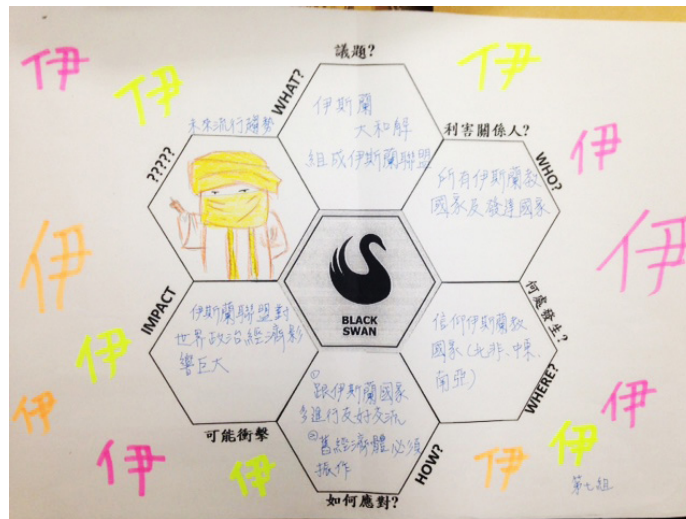 議題?
WHAT?
伊斯蘭
大和解
組成伊斯蘭聯盟
利害關係人?
WHO?
所有伊斯蘭教
國家及發達國家
何處發生?
WHERE?
信仰伊斯蘭教
國家(北非、中東、
南亞)
如何應對?
HOW?
①
跟伊斯蘭國家
多進行友好交流
②舊經濟體必須
振作
可能衝擊
IMPACT
伊斯蘭聯盟對
世界政治經濟影
響巨大
?????
未來流行趨勢
BLACK
SWAN
伊
伊
伊
伊
伊
伊
伊
伊
伊
伊
伊
伊
伊
伊
第七組